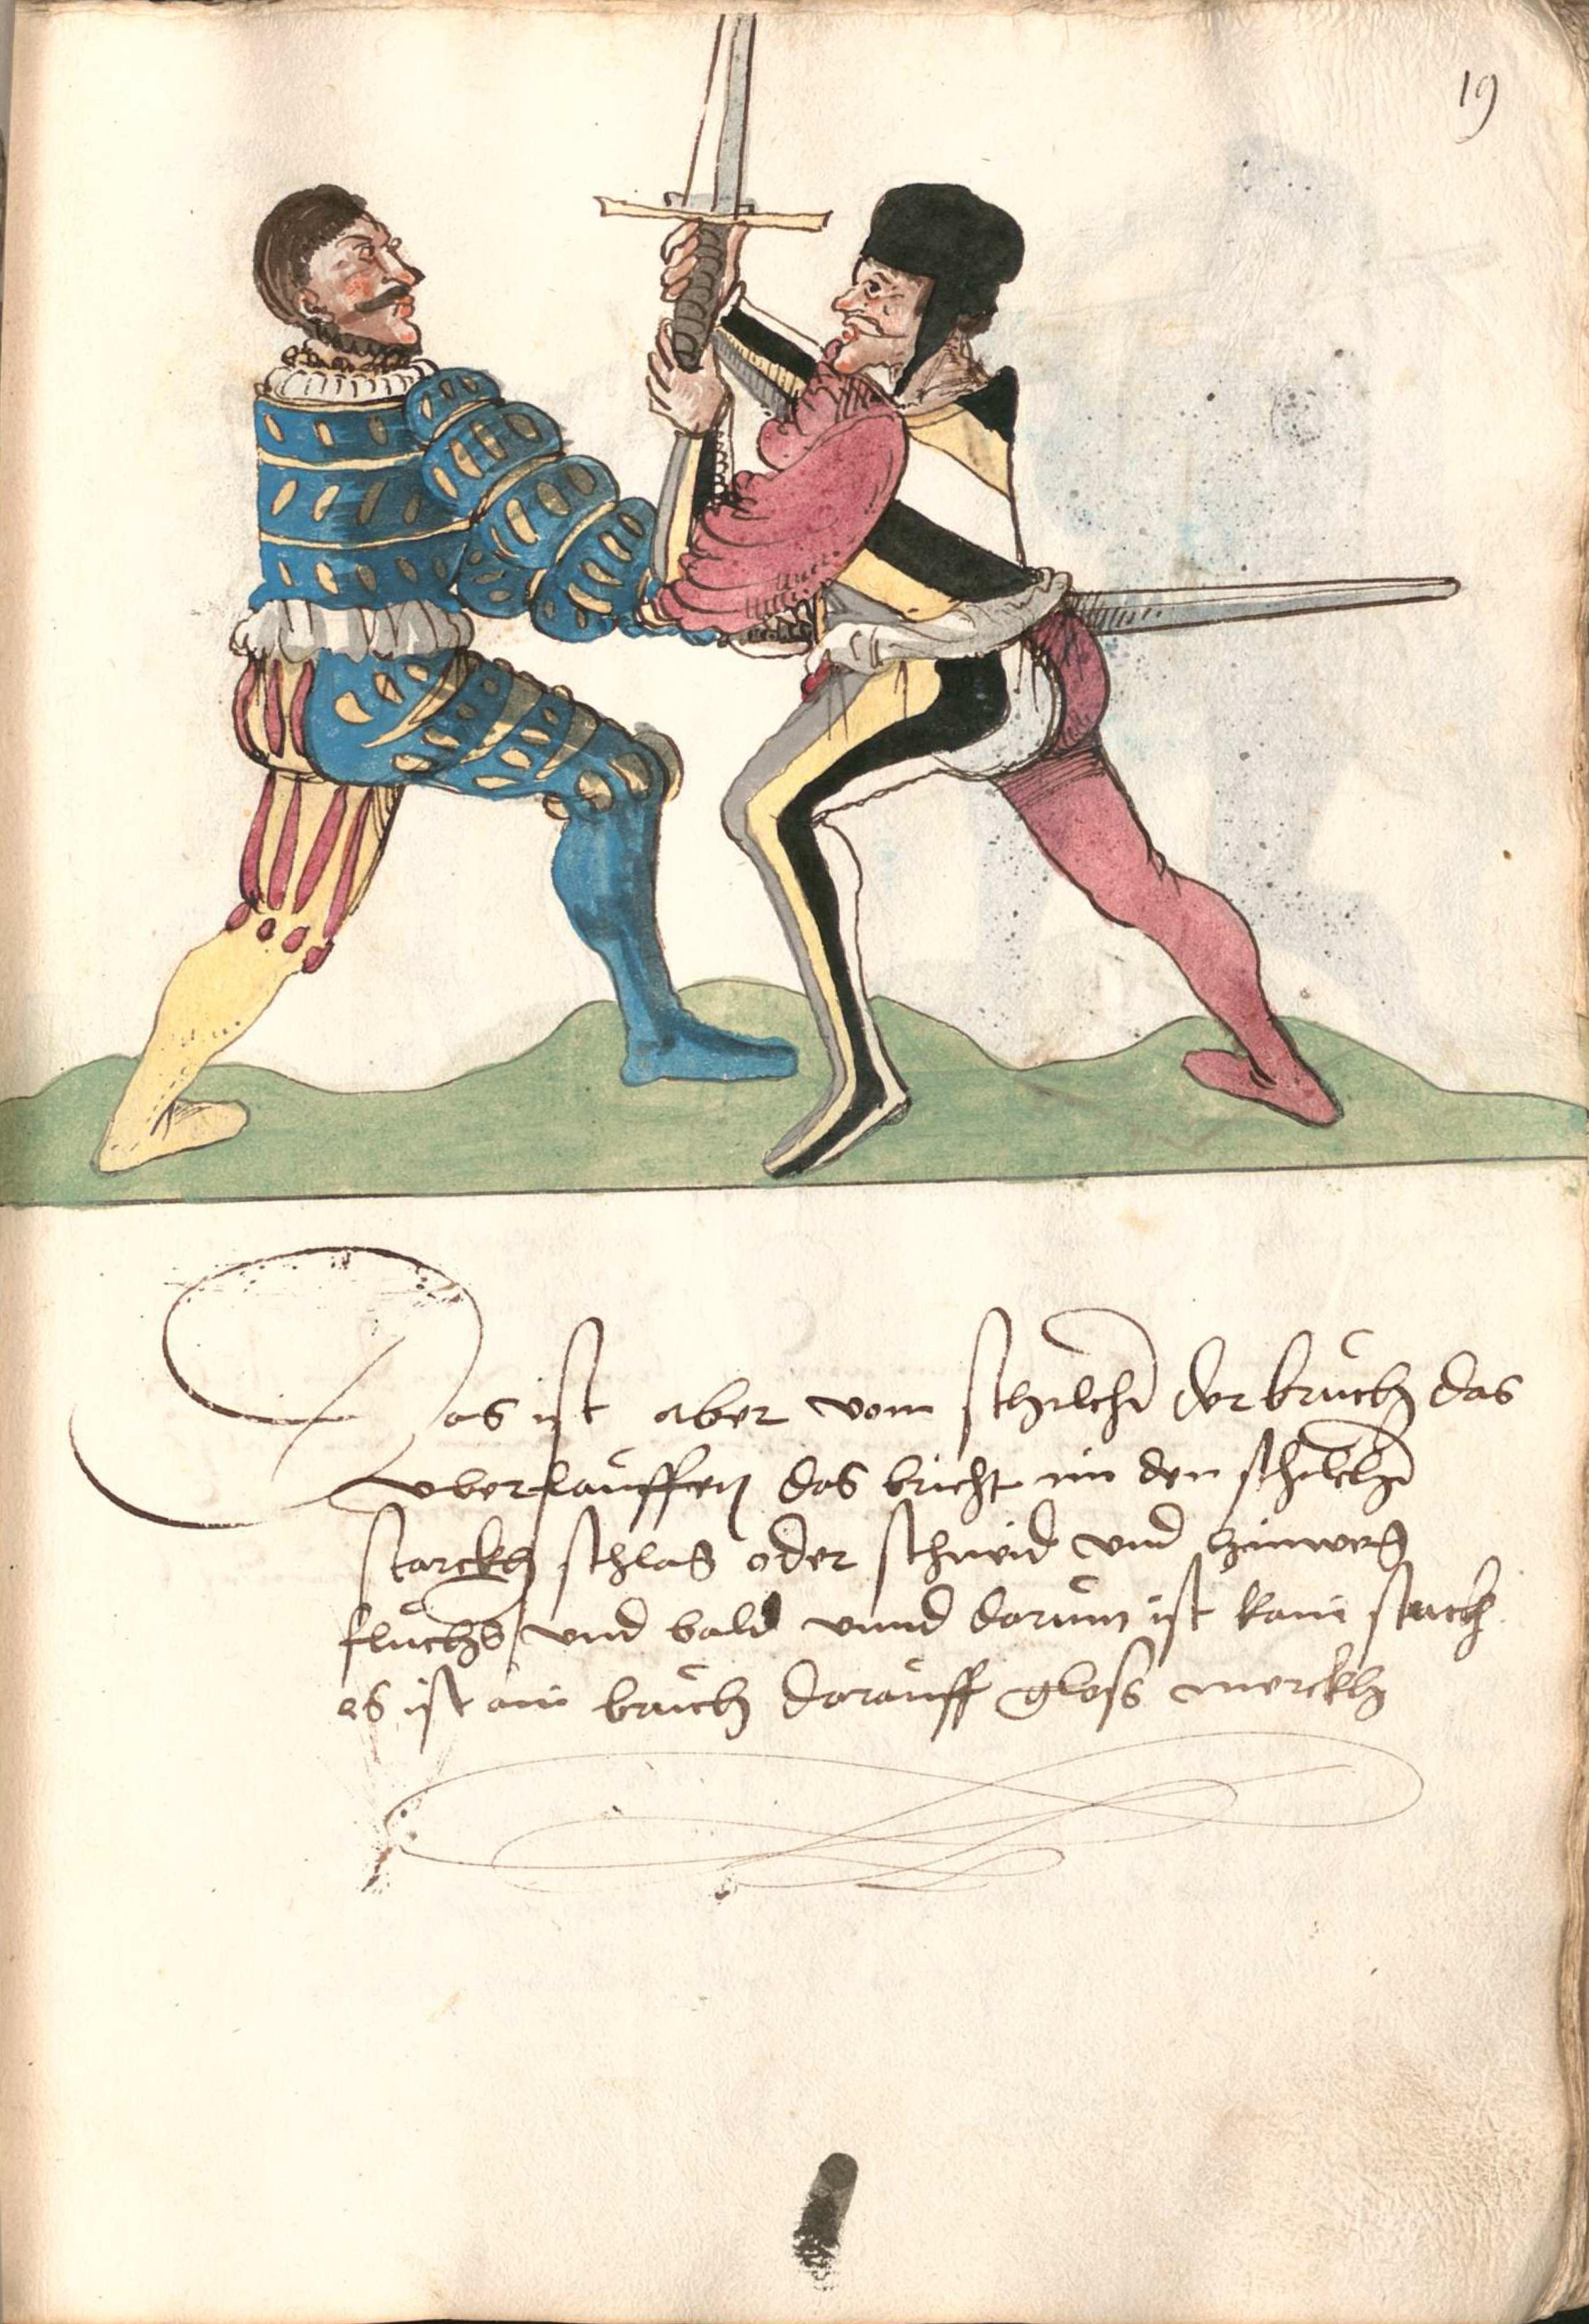 19
Das ist aber vom schilche᷑ der bruch das
vberlauffen das bricht im den schilche᷑
starckh schlag oder schneid vnd hinweg
fluchs vnd bald vnnd darum ist kain
es ist ain bruch darauff gloss merckh